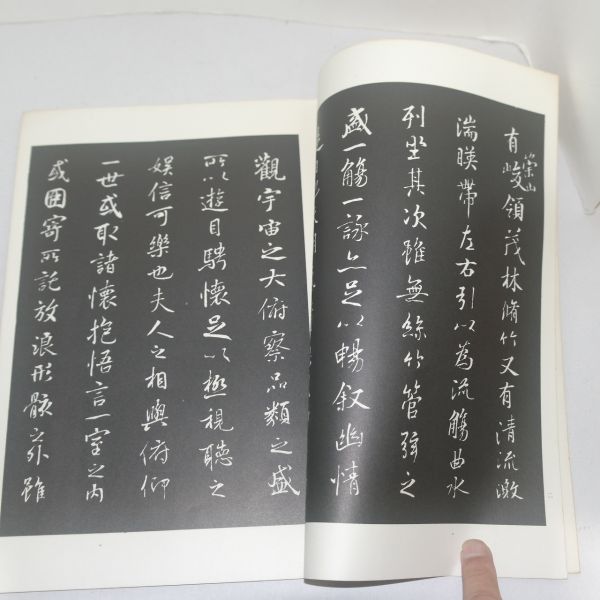 有崇山峻領茂林脩竹又有清流激
湍暎帶左右引以為流觴曲水
列坐其次雖無絲竹管弦之
盛一觴一詠亦足以暢叙幽情
觀宇宙之大俯察品類之盛
所以遊目騁懷足以極視聽之
娛信可樂也夫人之相與俯仰
一世或取諸懷抱悟言一室之內
或因寄所託放浪形骸之外雖